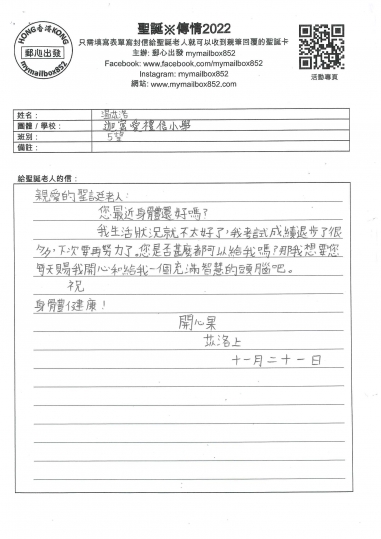 HONG香港KONG
郵心出發
mymailbox852
聖誕※傳情2022
只需填寫表單寫封信給聖誕老人就可以收到親筆回覆的聖誕卡
主辦: 郵心出發 mymailbox852
Facebook: www.facebook.com/mymailbox852
Instagram: mymailbox852
網站: www.mymailbox852.com
活動專頁
姓名：
團體 / 學校： 迦密愛禮信小學
班別： 5望
備註：
給聖誕老人的信：
親愛的聖誕老人：
您最近身體還好嗎？
我生活狀況就不太好了，我考試成績退步了很
多，下次要再努力了。您是否甚麼都可以給我嗎？那我想要您
每天賜我開心和給我一個充滿智慧的頭腦吧。
祝
身體健康！
開心果
上
十一月二十一日